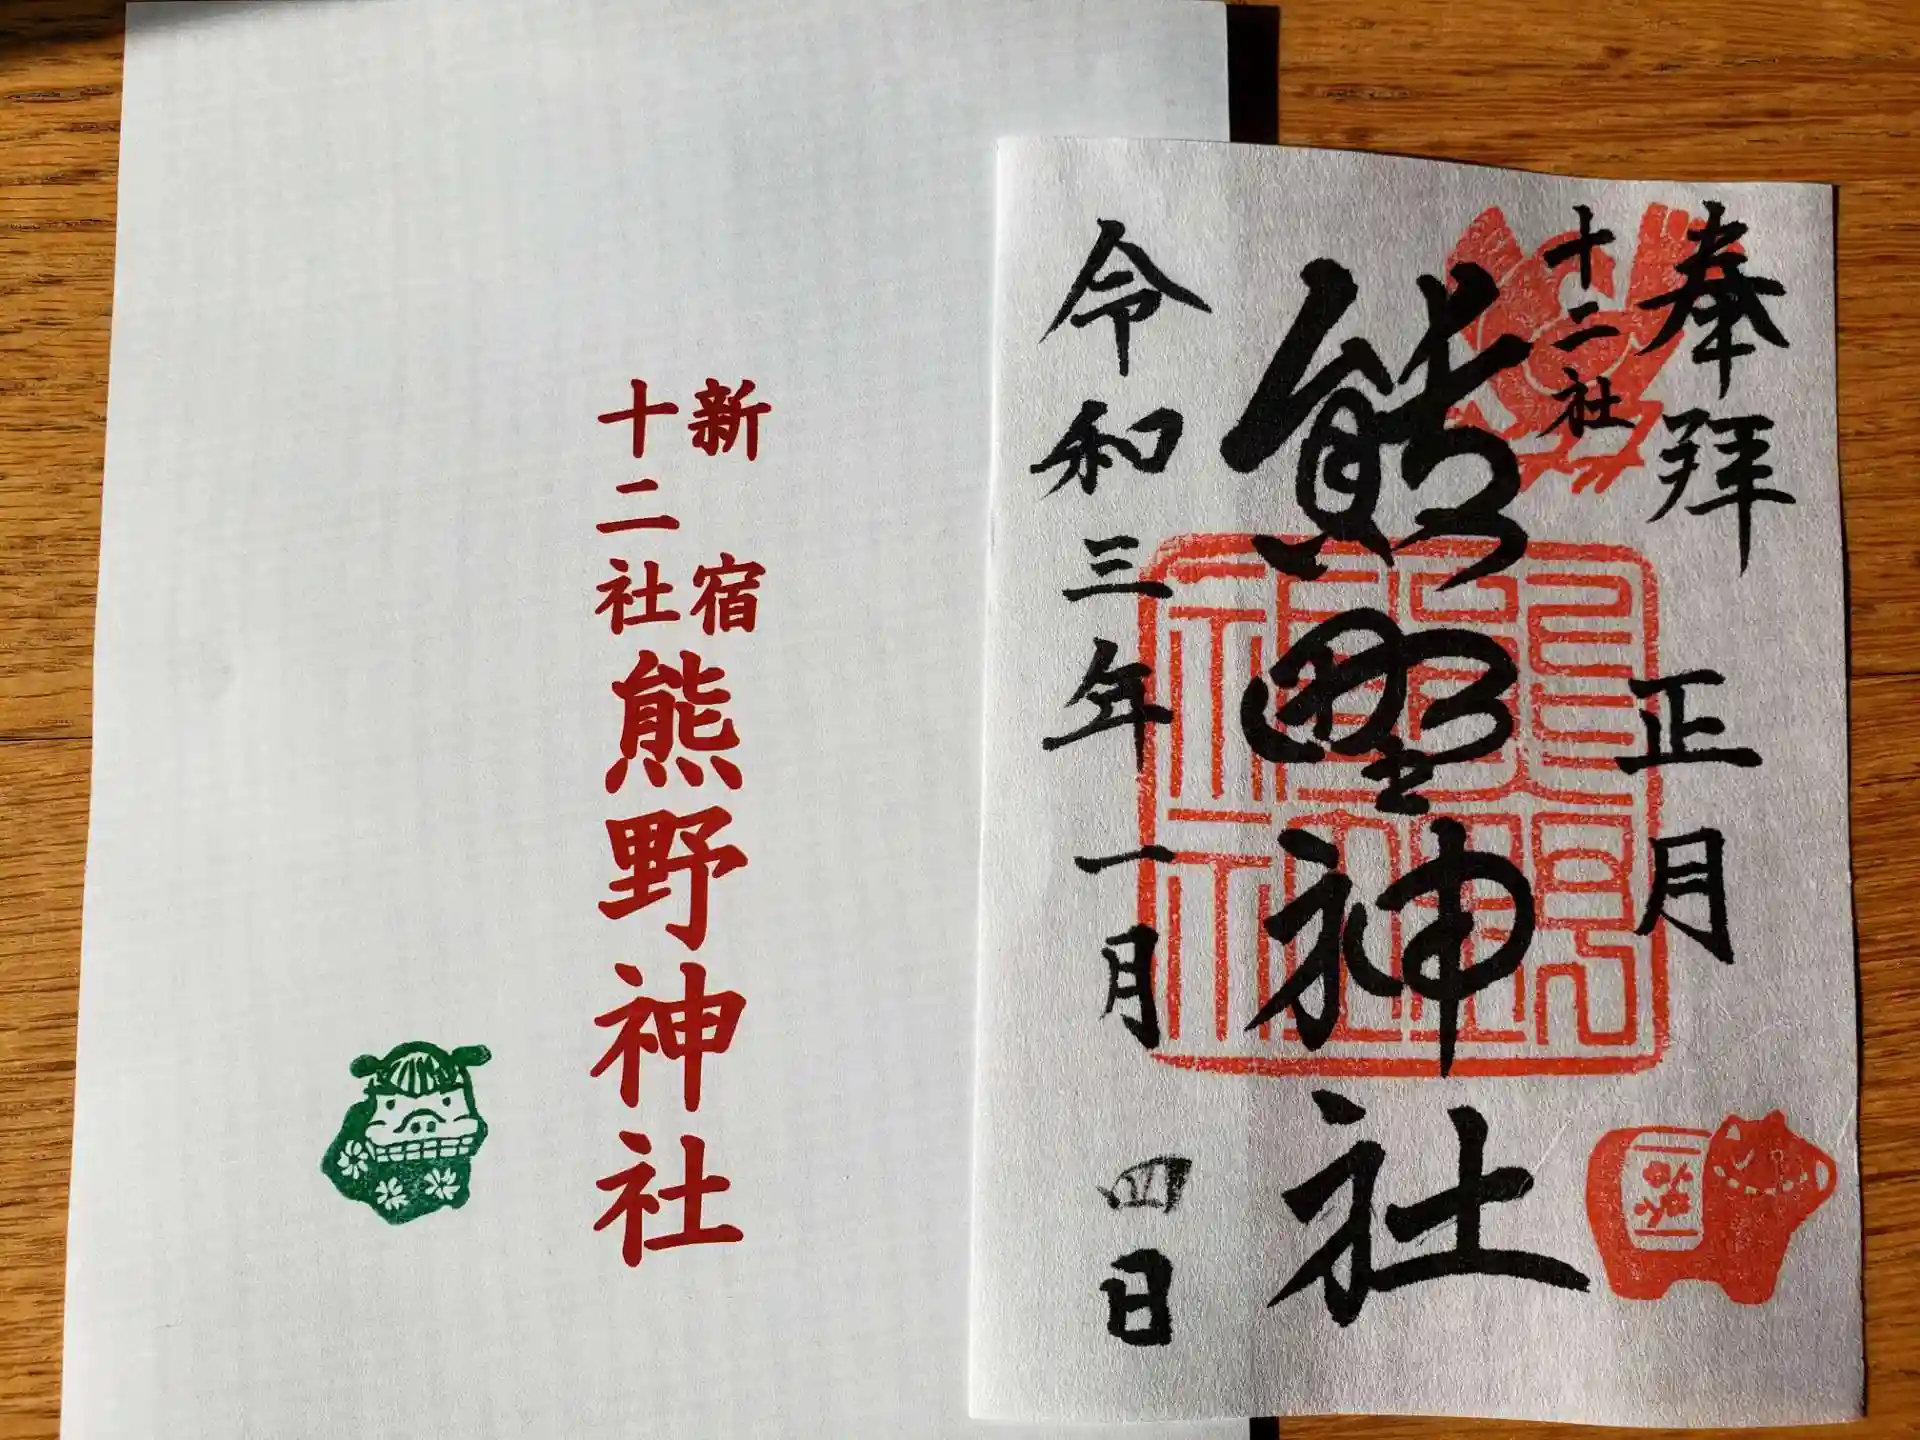 新宿
十二社
熊野神社
奉拝 正月
十二社
熊野神社
令和三年一月四日